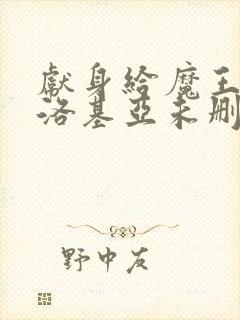 獻身給魔王
洛基亞未刪
野中友